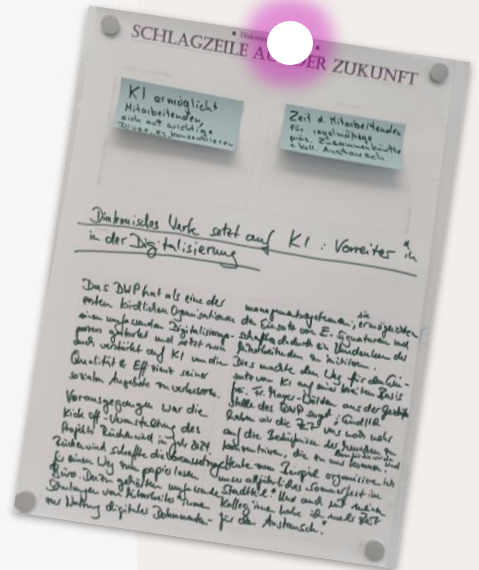 Diakoni
SCHLAGZEILE AUS DER ZUKUNFT
KI ermöglicht
Mitarbeitenden,
sich auf wichtige
Dinge zu konzentrieren
Zeit d. Mitarbeitenden
für regelmäßige
präs. Zusammenkünfte
+ koll. Austausch
Diakonisches Werk setzt auf KI: Vorreiter*in
in der Digitalisierung
Das DWP hat als eine der
ersten kirchlichen Organisationen
einen umfassenden Digitalisierungs-
gestartet und setzt nun
auch verstärkt auf KI um die
Qualität & Effizienz seiner
sozialen Angebote zu verbessern.
Vorausgegangen war die
Kick off-Veranstaltung des
Projekts Rückenwind im Juli 2024.
Rückenwind schaffte die Voraussetzungen
für einen Weg zum papierlosen
Büro. Dazu gehörten umfassende
Schulungen von Mitarbeiter*innen
zur Nutzung digitaler Dokumenten-
managementsysteme, sie ermöglichten
den Einsatz von E-Signaturen und
schafften durch ein Umdenken der
Mitarbeitenden zu initiieren.
Dies machte den Weg für den Ein-
satz von KI auf eine breiten Basis
frei. Fr. Mayer-Dölden aus der Geschäfts-
stelle des DWP sagt: Endlich
haben wir die Zeit uns noch mehr
auf die Bedürfnisse der Menschen zu
konzentrieren, die zu uns kommen
heute zum Beispiel organisiere ich
unser alljährliches Sommerfest im
Stadtteil. Und auch mit meinen
Kolleg*inne habe ich mehr Zeit
für den Austausch.